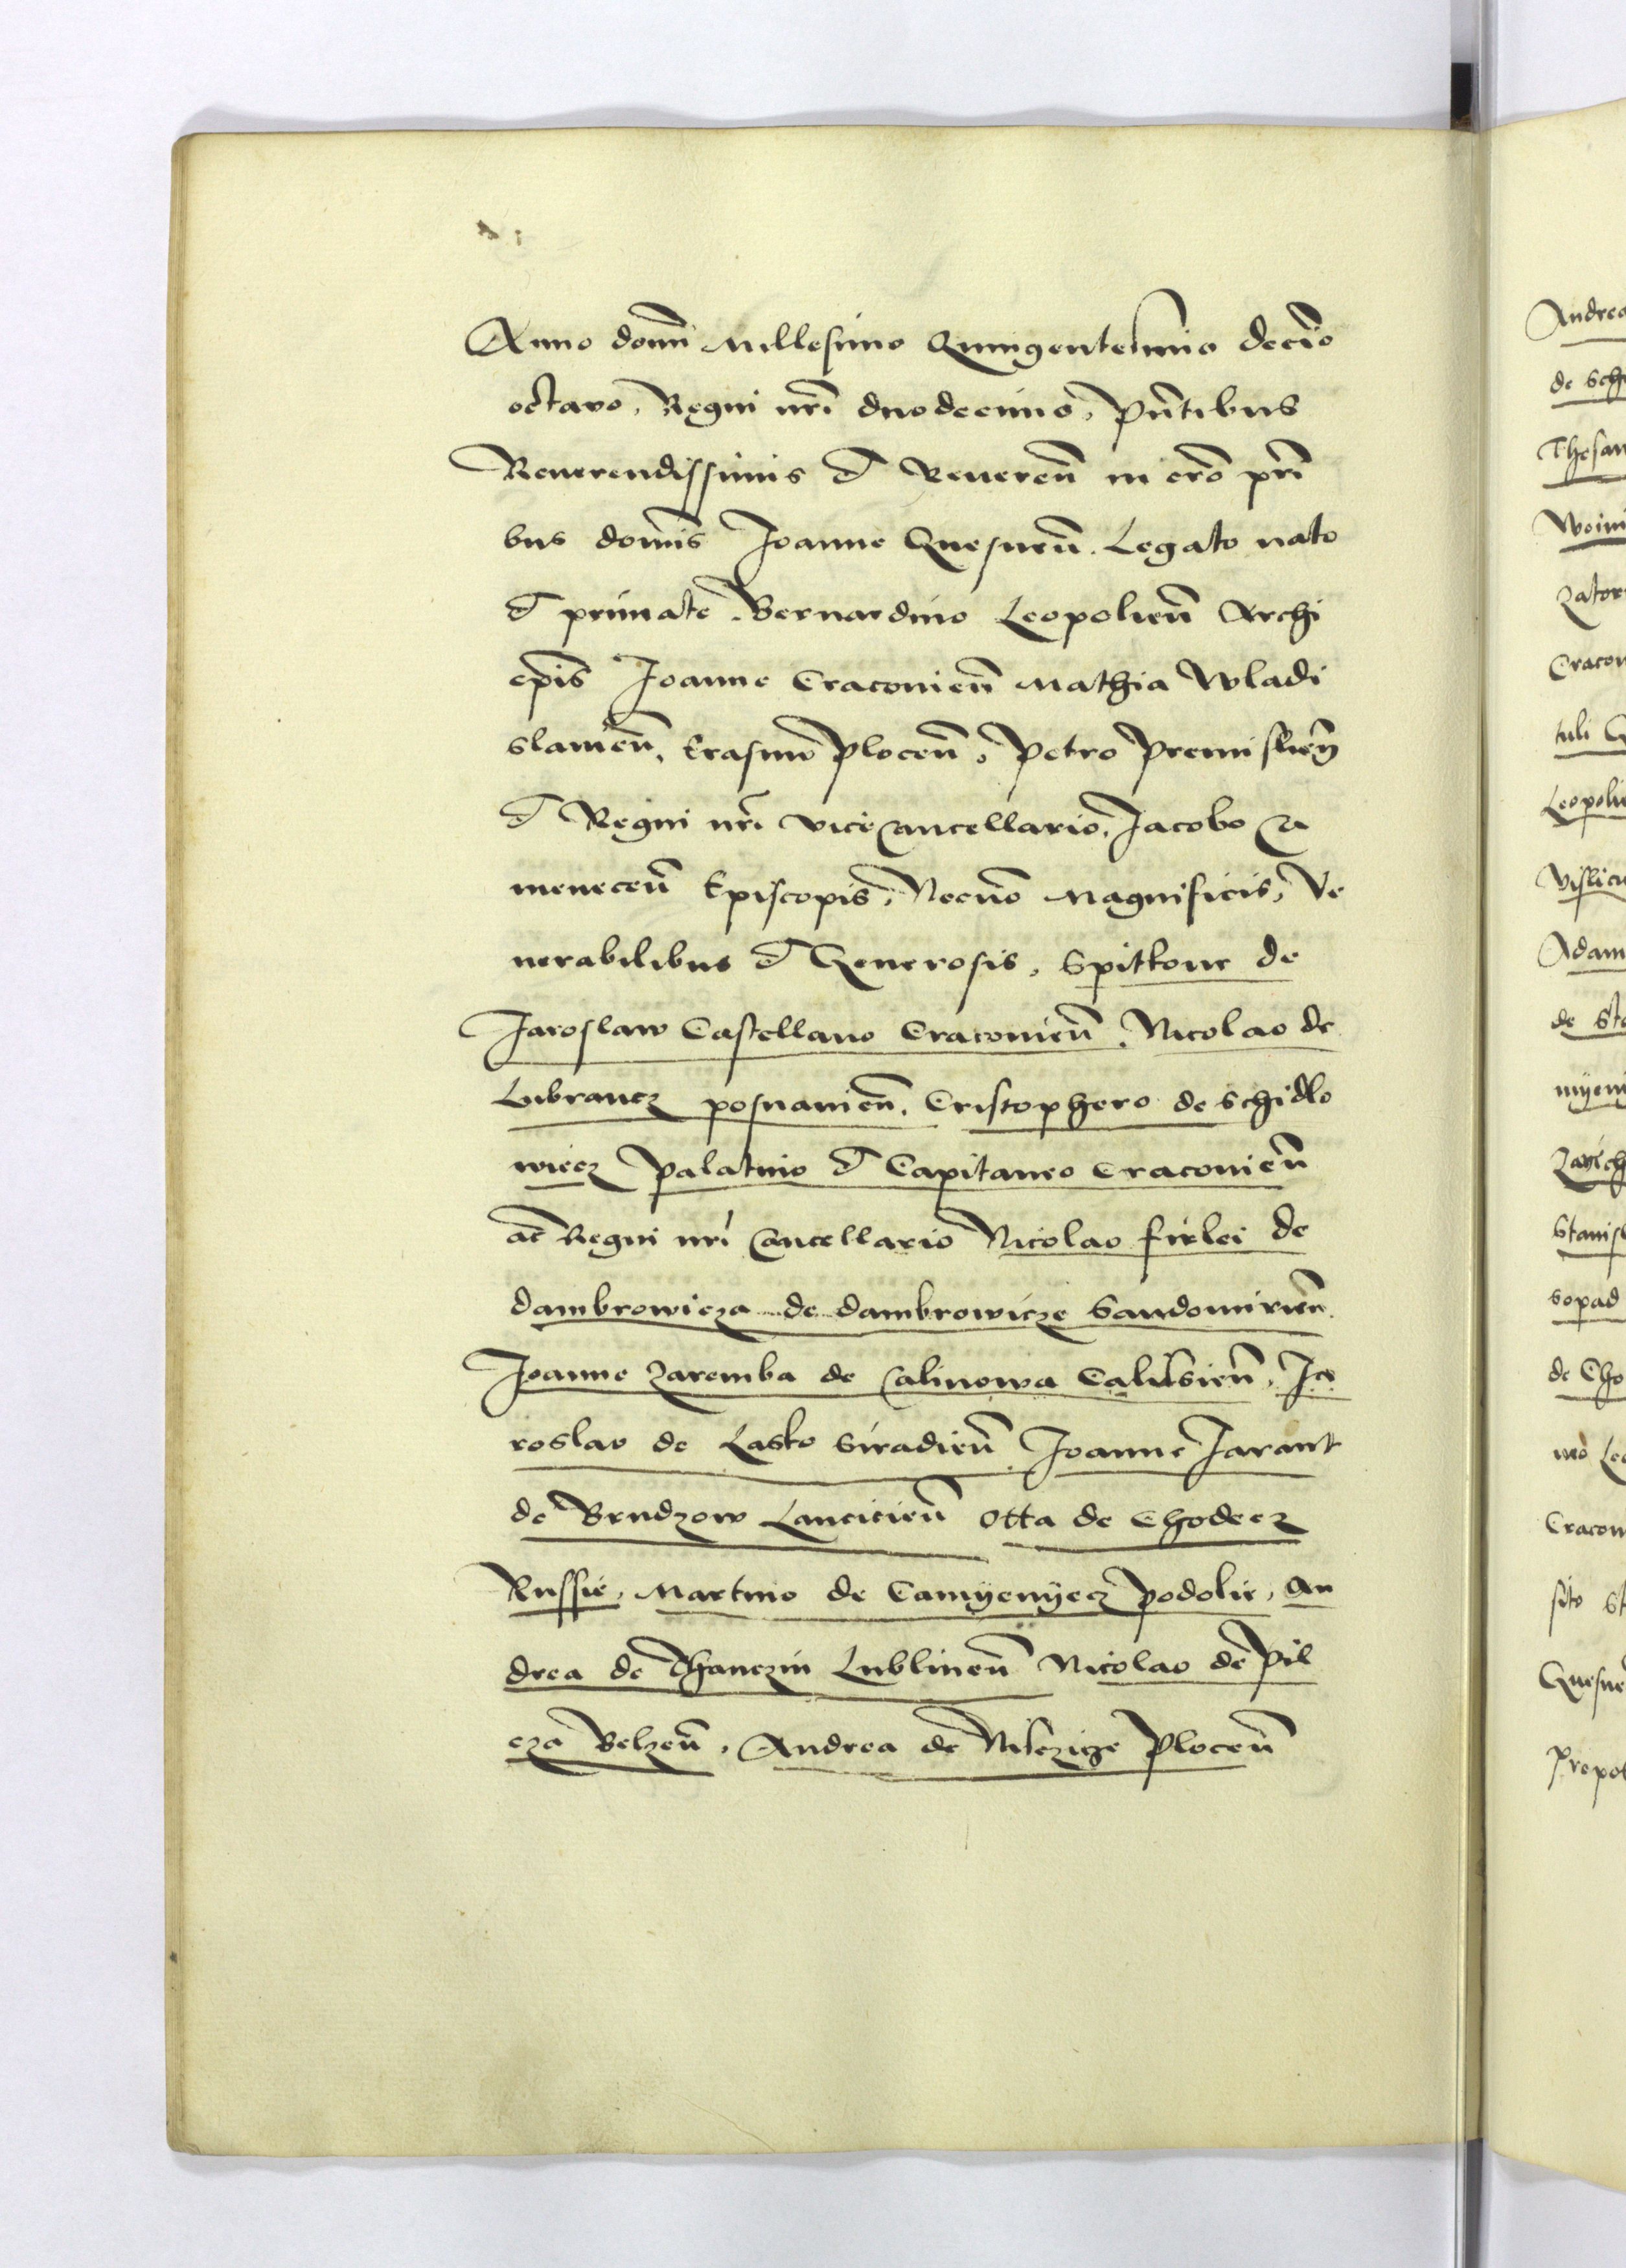 Anno domī Millesimo Quingentesimo decīo
octavo, Regni nrī duodecimo, pntībus
Reverendissimis et Reueren̄ in cro pri
bus domīs Joanne Gnesnen̄. Legato nato
et primate. Bernardino Leopolien̄ Archi
epīs Joanne Cracouien̄ Mathia Wladi
slauien̄, Erasmo Plocen̄, Petro Premislien̄
et Regni nrī vicecancellario, Jacobo Ca
menecen̄ Episcopis, Necnō Magnificis, Ve
nerabilibus et Generosis, Spitkone de
Jaroslaw Castellano Cracouien̄, Nicolao de
Lubrancz posnanien̄, Cristophero de Schidlo
wiecz Palatino et Capitaneo Cracouien̄
ac Regni nrī Cancellario Nicolao Firlei de
dambrowicza de dambrowicze Sandomirien̄.
Joanne Zaremba de Calinowa Calisien̄, Ja
roslao de Lasko Siradien̄ Joanne Jarant
de Brudzow Lancicien̄ Otta de Chodecz
Russie, Martino de Camÿenÿecz Podolie, An
drea de Thanczin Lublinen̄ Nicolao de Pil
cza Belzen̄, Andrea de Nisczicze Plocen̄
Andrea
de Sch
Thesau
Woini
Zator
Cracou
tuli G
Leopoli
Vislicu
Adam
de Ste
myeni
Stanisl
sopad
de Cho
Cracou
sito St
Gnesne
Prepo